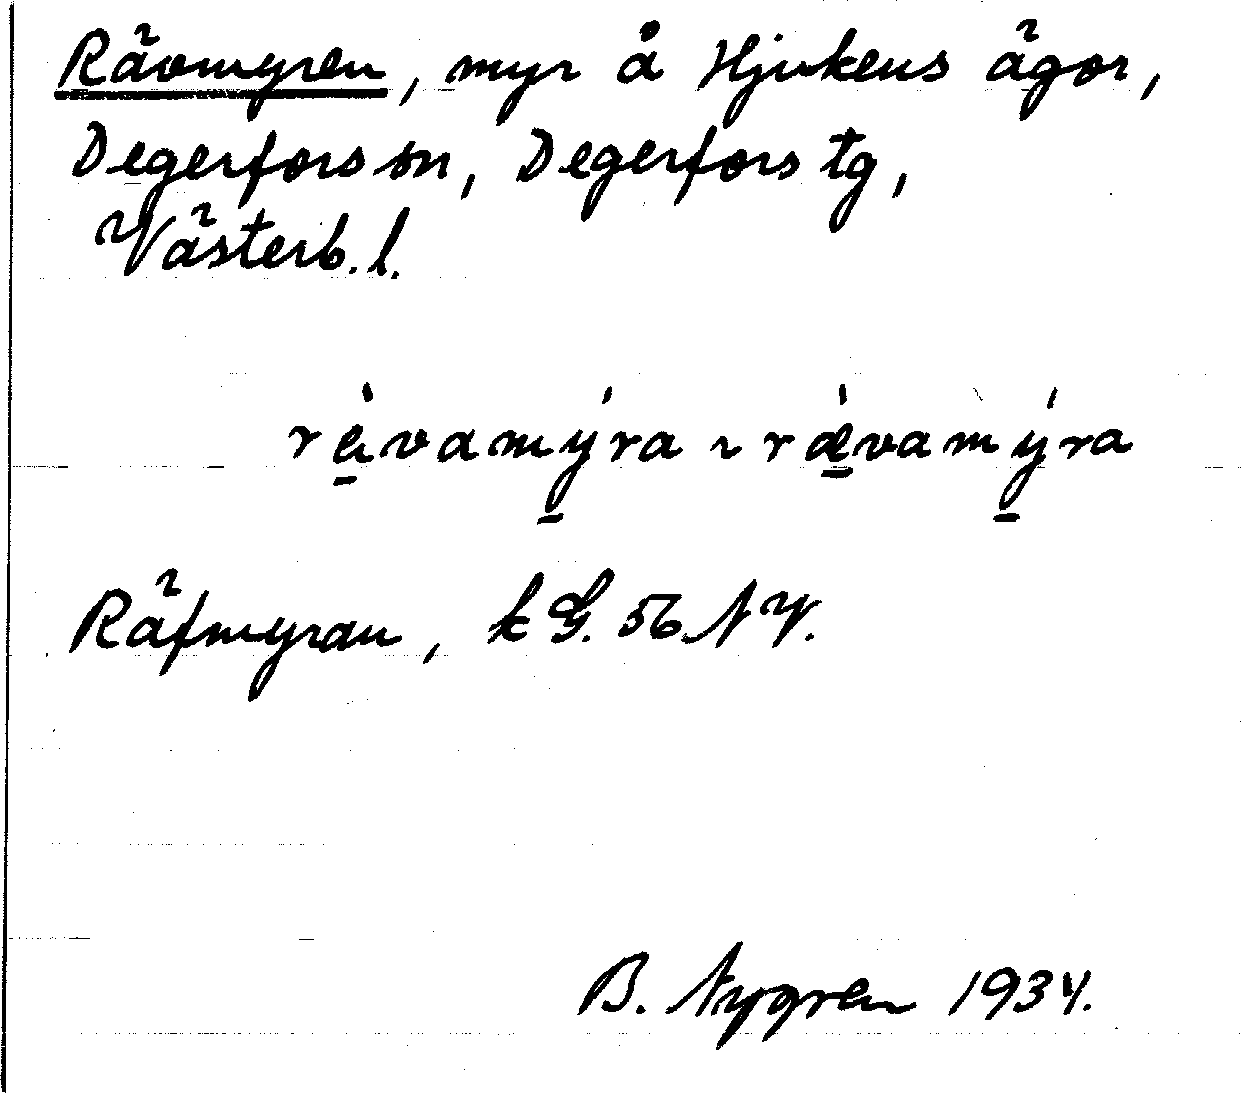 Rävmyren, myr å Hjukens ägor,
Degerfors sn, Degerfors tg,
Västerb. l.
rèvamýra ~ ræ̀vamýra
Räfmyran, k G. 56 NV.
B. Nygren 1934.